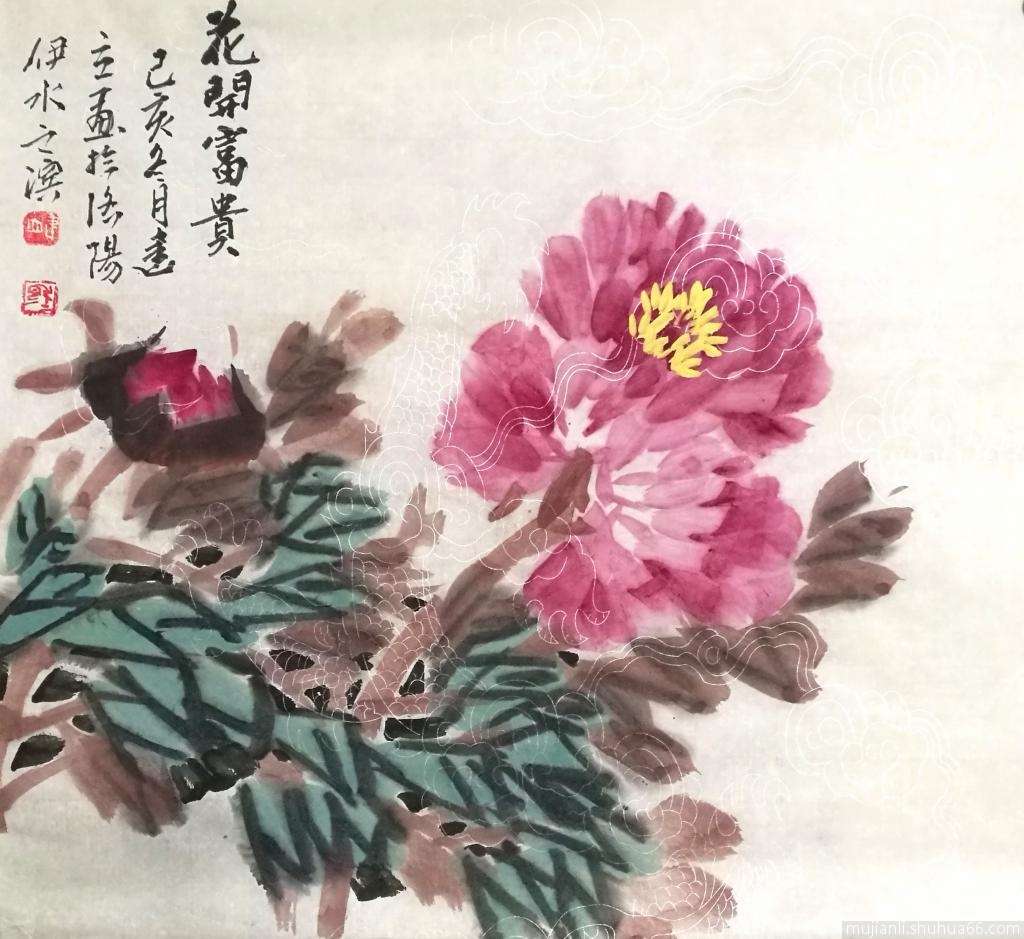 花開富貴
己亥冬月建
立畫於洛陽
伊水之濱
mujianli.shuhua66.com